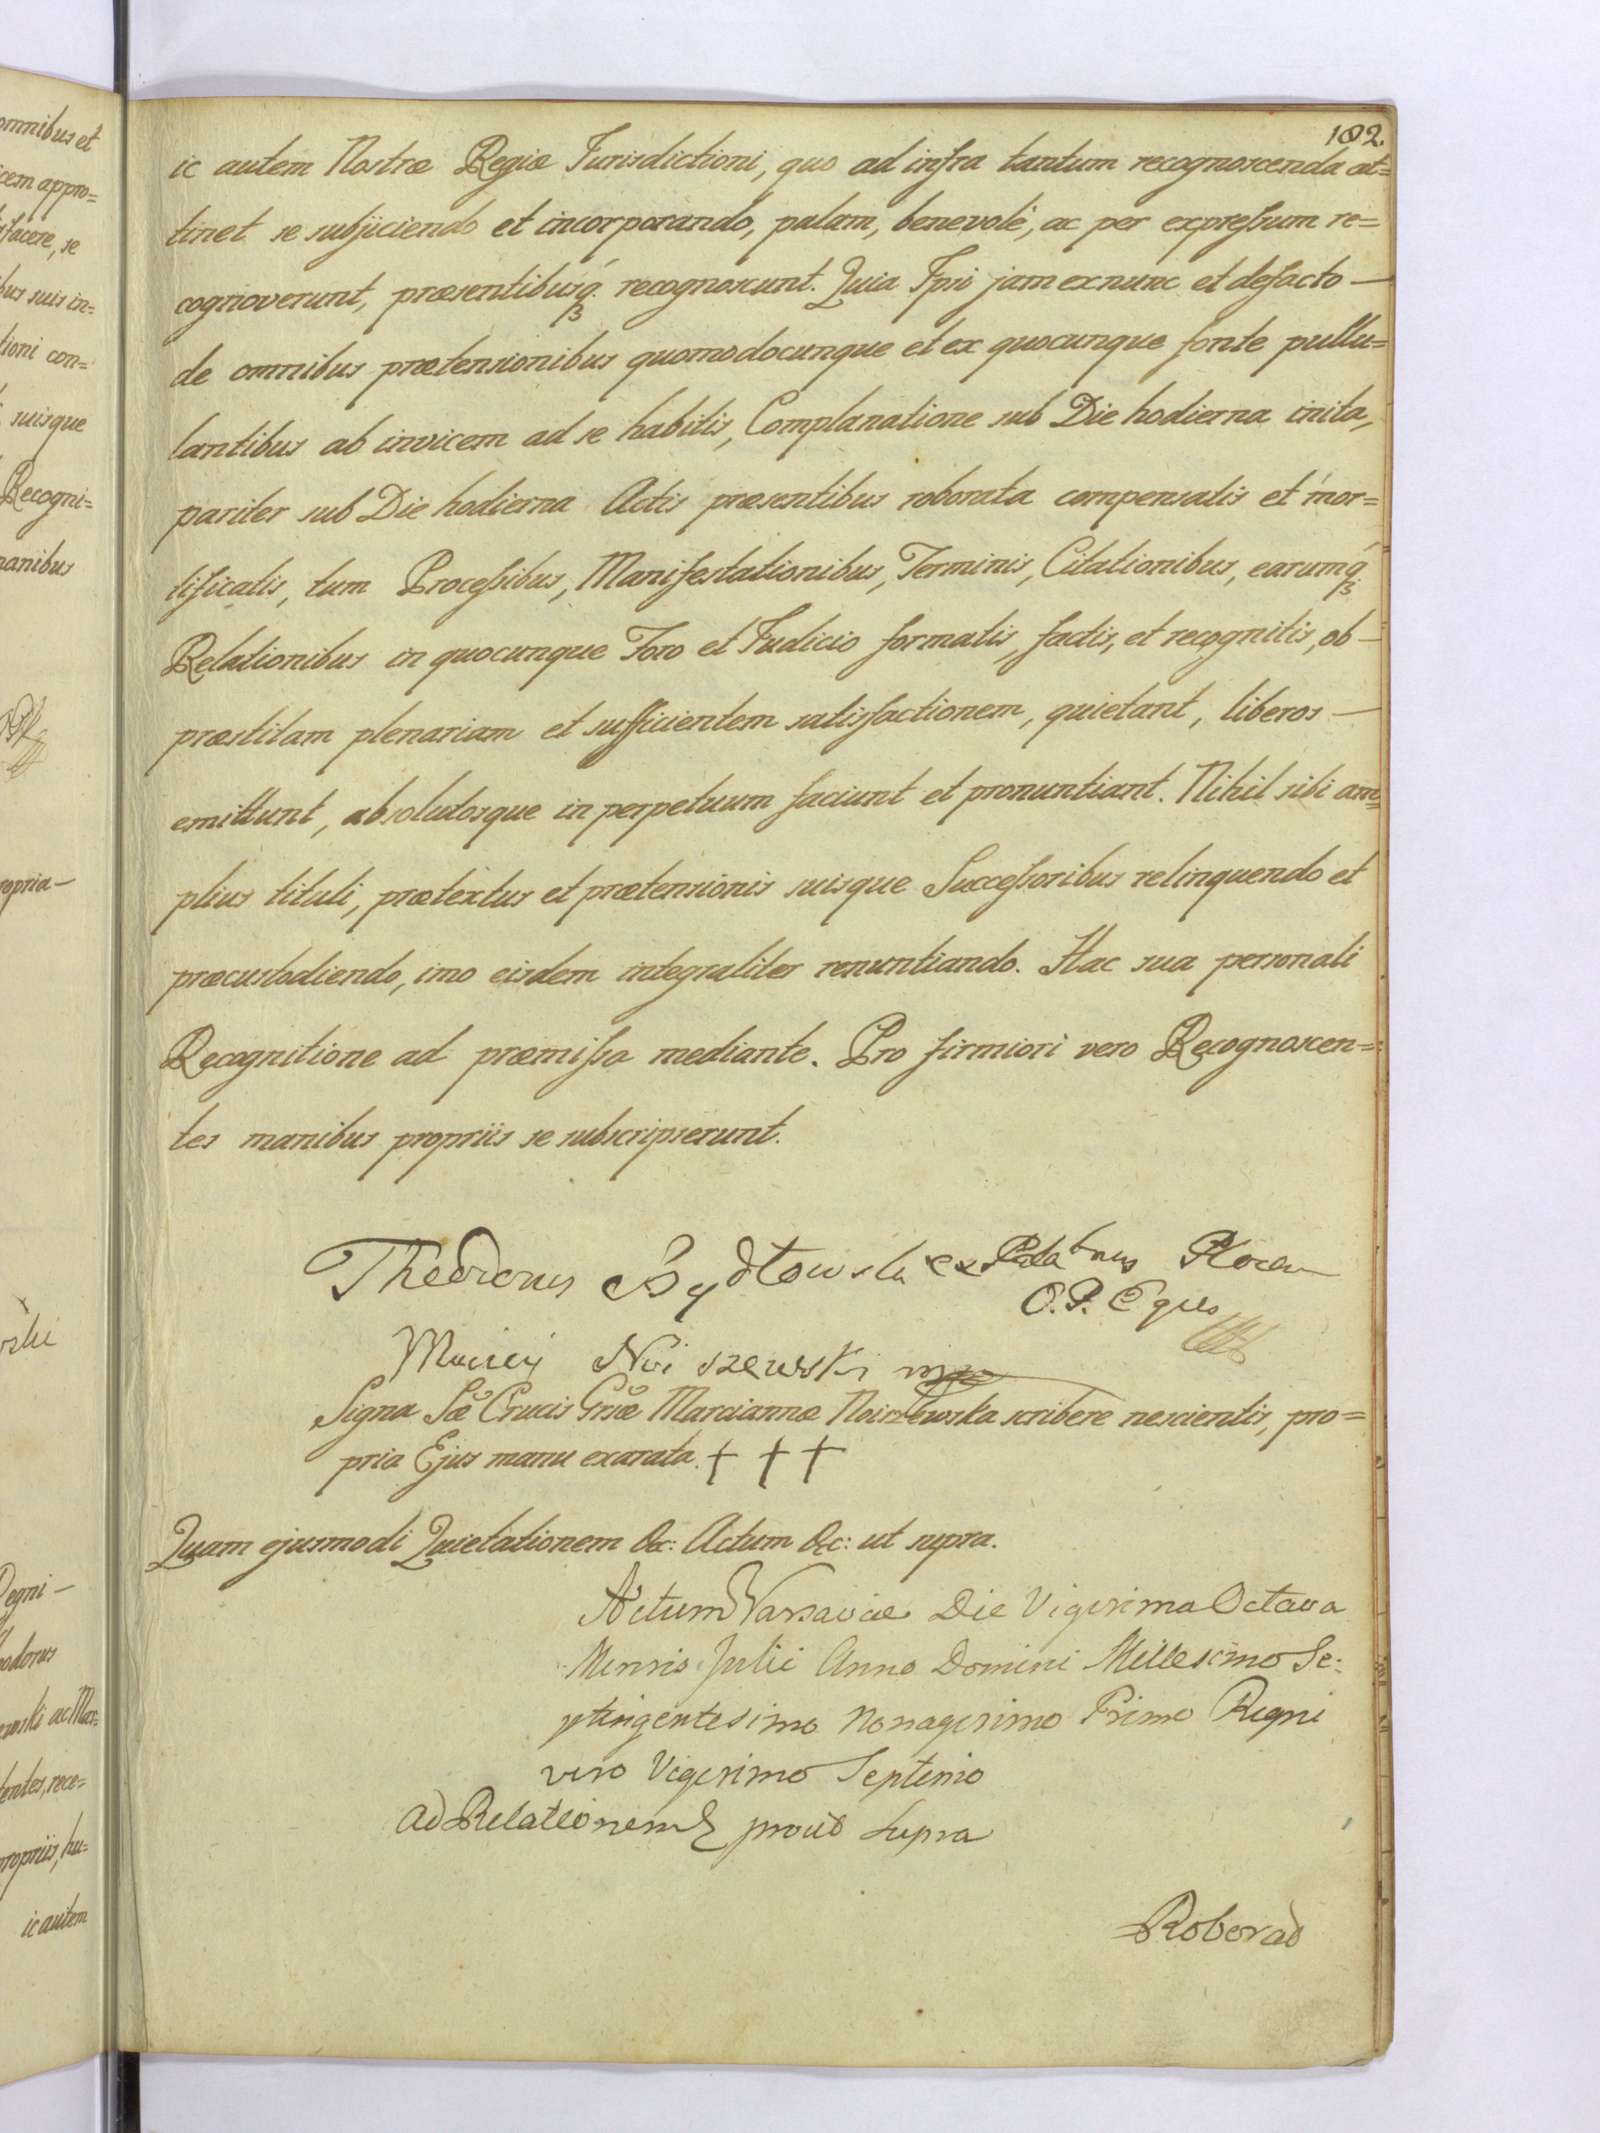 182.
ic autem Nostræ Regiæ Jurisdictioni, quo ad infra tantum recognoscenda at=
tinet se subjiciendo et incorporando, palam, benevolè, ac per expressum re=
cognoverunt, præsentibusq́ꝫ recognoscunt. Quia Ipsi jam exnunc et defacto —
de omnibus prætensionibus quomodocunque et ex quocunque fonte pullu=
lantibus ab invicem ad se habitis, Complanatione sub Die hodierna inita,
pariter sub Die hodierna Actis præsentibus roborata compensatis et mor=
tificatis, tum Processibus, Manifestationibus, Terminis, Citationibus, earumq́ꝫ
Relationibus in quocunque Foro et Judicio formatis, factis, et recognitis, ob —
præstitam plenariam et sufficientem satisfactionem, quietant, liberos —
emittunt, absolutosque in perpetuum faciunt et pronuntiant. Nihil sibi am=
plius tituli, prætextus et prætensionis suisque Successoribus relinquendo et
præcustodiendo, imo eisdem integraliter renuntiando. Hac sua personali
Recognitione ad præmissa mediante. Pro firmiori vero Recognoscen=
tes manibus propriis se subscripserunt.
Theodorus
O. P. Eques
Maciey Noiszewski mp
Signa Sæ Crucis Grsæ Marciannæ Noiszewska scribere nescientis, pro=
pria Ejus manu exarata. + + +
Quam ejusmodi Quietationem &c: Actum &c: ut supra.
Actum Varsaviæ Die Vigesima Octava
Mensis Julii Anno Domini Millesimo Se=
ptingentesimo Nonagesimo Primo Regni
vero Vigesimo Septimo
Ad Relationem prout Supra
Roborat